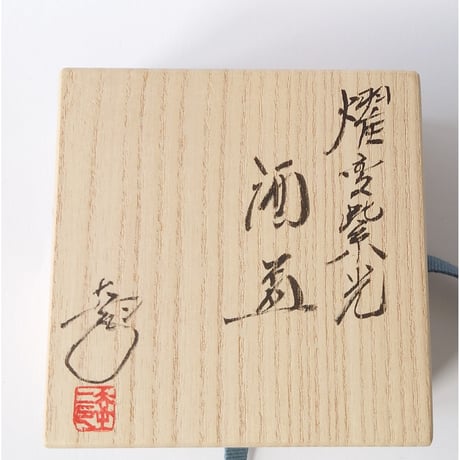 燿変紫光
酒盃